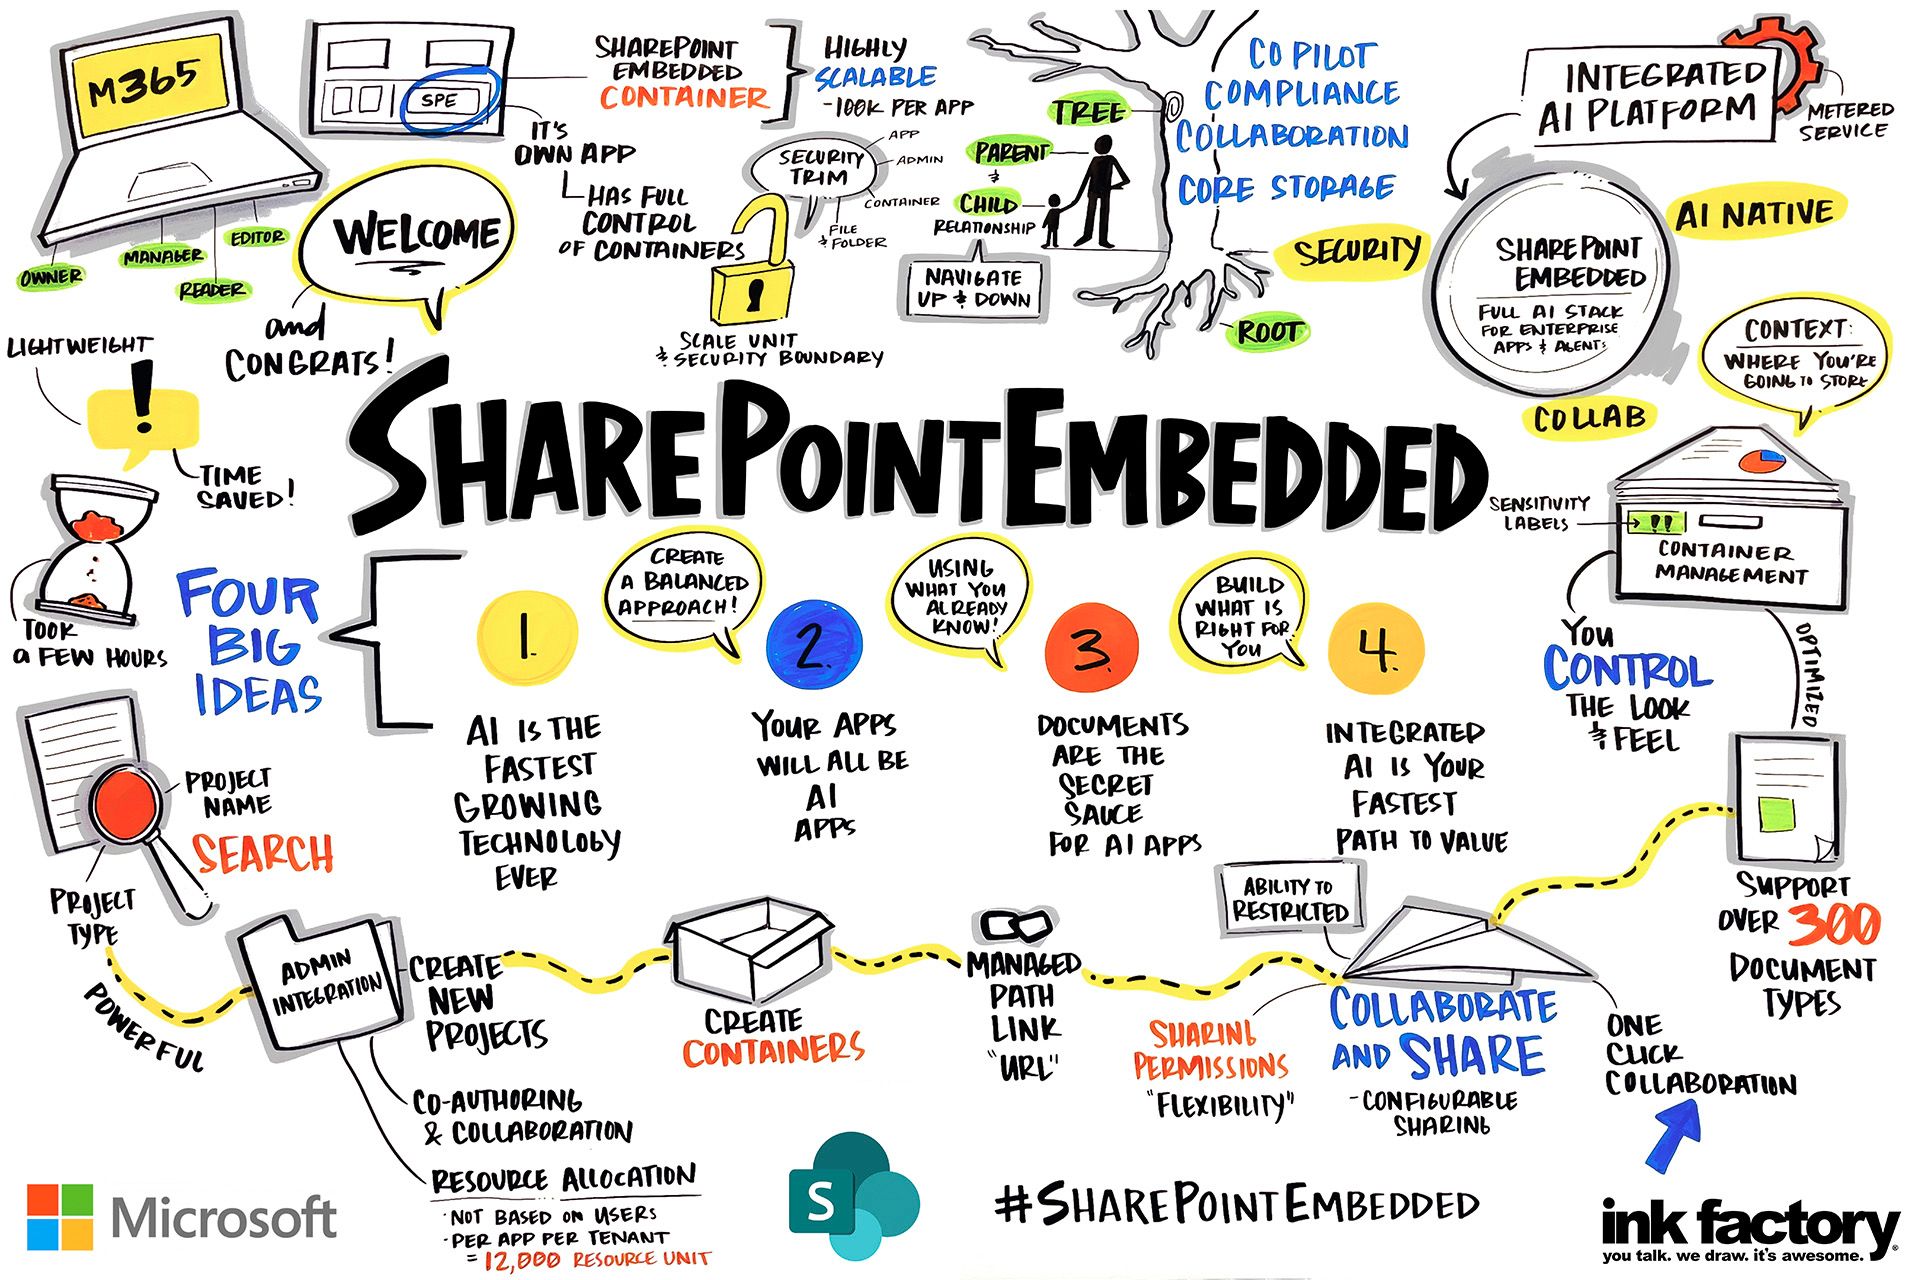 M365
OWNER
MANAGER
READER
EDITOR
WELCOME
and
CONGRATS!
SPE
SHAREPOINT
EMBEDDED
CONTAINER
HIGHLY
SCALABLE
-100K PER APP
IT'S
OWN APP
HAS FULL
CONTROL
OF CONTAINERS
SECURITY
TRIM
APP
ADMIN
CONTAINER
FILE
& FOLDER
SCALE UNIT
& SECURITY BOUNDARY
TREE
PARENT
&
CHILD
RELATIONSHIP
NAVIGATE
UP & DOWN
ROOT
COPILOT
COMPLIANCE
COLLABORATION
CORE STORAGE
INTEGRATED
AI PLATFORM
METERED
SERVICE
SECURITY
AI NATIVE
SHAREPOINT
EMBEDDED
FULL AI STACK
FOR ENTERPRISE
APPS & AGENTS
COLLAB
CONTEXT:
WHERE YOU'RE
GOING TO STORE
LIGHTWEIGHT
!
TIME
SAVED!
TOOK
a FEW HOURS
SHAREPOINT EMBEDDED
SENSITIVITY
LABELS
!!
CONTAINER
MANAGEMENT
YOU
CONTROL
THE LOOK
& FEEL
OPTIMIZED
FOUR
BIG
IDEAS
1.
AI IS THE
FASTEST
GROWING
TECHNOLOGY
EVER
CREATE
A BALANCED
APPROACH!
2.
YOUR APPS
WILL ALL BE
AI
APPS
USING
WHAT YOU
ALREADY
KNOW!
3.
DOCUMENTS
ARE THE
SECRET
SAUCE
FOR AI APPS
BUILD
WHAT IS
RIGHT FOR
YOU
4.
INTEGRATED
AI IS YOUR
FASTEST
PATH TO VALUE
PROJECT
NAME
SEARCH
PROJECT
TYPE
POWERFUL
ADMIN
INTEGRATION
CREATE
NEW
PROJECTS
CO-AUTHORING
& COLLABORATION
RESOURCE ALLOCATION
·NOT BASED ON USERS
·PER APP PER TENANT
= 12,000 RESOURCE UNIT
CREATE
CONTAINERS
MANAGED
PATH
LINK
"URL"
ABILITY TO
RESTRICTED
SHARING
PERMISSIONS
"FLEXIBILITY"
COLLABORATE
AND SHARE
-CONFIGURABLE
SHARING
ONE
CLICK
COLLABORATION
SUPPORT
OVER 300
DOCUMENT
TYPES
Microsoft
S
#SHAREPOINTEMBEDDED
ink factory®
you talk. we draw. it's awesome.